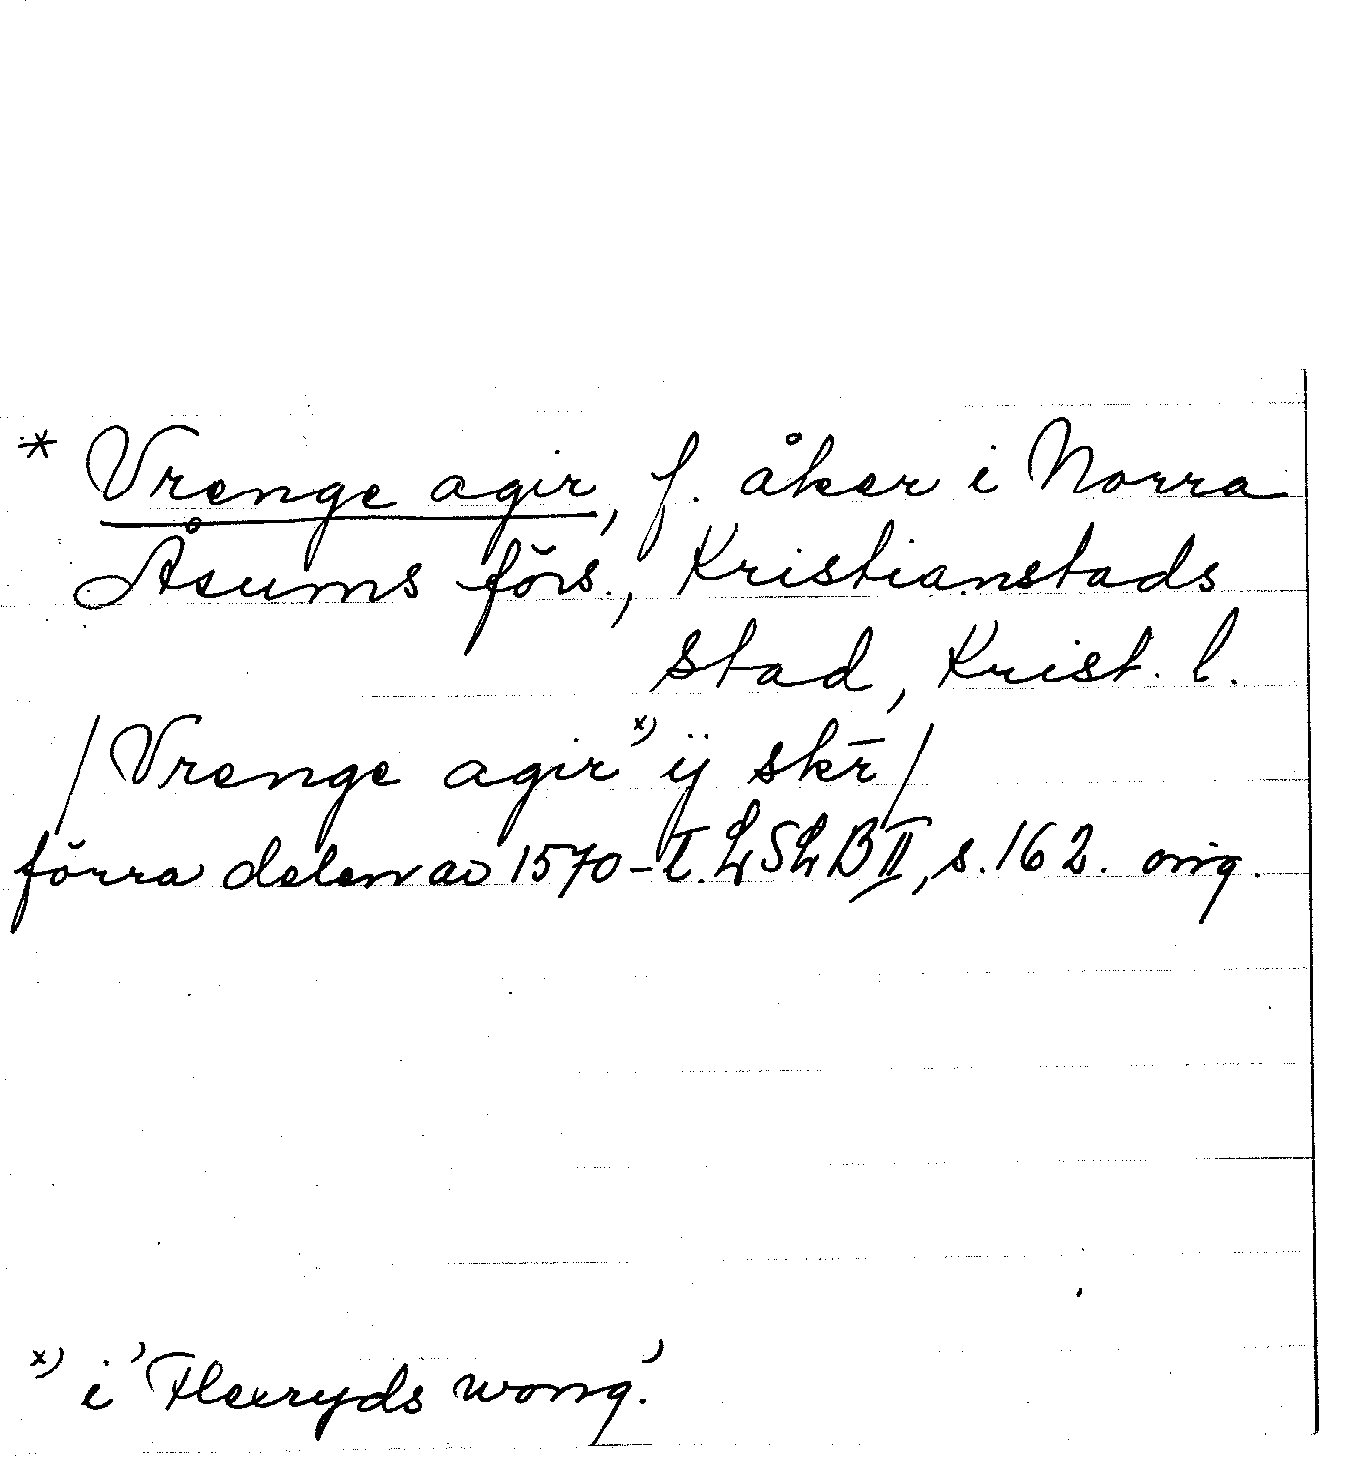 * Vrenge agir, f. åker i Norra
Åsums förs., Kristianstads
stad, Krist. l.
/Vrenge agir x) ÿ skr̄/
förra delen av 1570-t. LSLB II, s. 162. orig.
x) i 'Flexryds wong.'